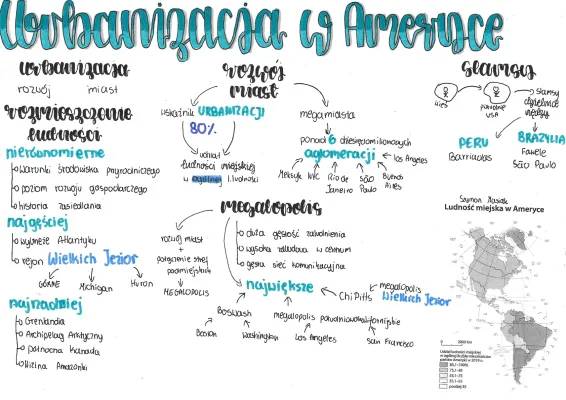 Urbanizacja w Ameryce
urbanizacja
rozwój miast
rozmieszczenie
ludności
nierównomierne
warunki środowiska przyrodniczego
poziom rozwoju gospodarczego
historia zasiedlania
najgęściej
wybrzeże Atlantyku
rejon Wielkich Jezior
GÓRNE
Michigan
Huron
najrzadziej
Grenlandia
Archipelag Arktyczny
północna Kanada
Nizina Amazonki
rozwój
miast
wskaźnik URBANIZACJI
80%
udział
ludności miejskiej
w ogólnej l. ludności
megamiasta
ponad 6 dziesięciomilionowych
aglomeracji
Los Angeles
Meksyk
NYC
Rio de
Janeiro
São
Paulo
Buenos
Aires
megalopolis
rozwój miast
+
połączenie stref
podmiejskich
MEGALOPOLIS
duża gęstość zaludnienia
wysoka zabudowa w centrum
gęsta sieć komunikacyjna
największe
ChiPitts
megalopolis
Wielkich Jezior
BosWash
Boston
Washington
megalopolis południowokalifornijskie
Los Angeles
San Francisco
slamsy
wieś
południe
USA
slamsy
dzielnice
nędzy
PERU
Barriadas
BRAZYLIA
Fawele
São Paulo
Szymon
Ludność miejska w Ameryce
0 2000 km
Udział ludności miejskiej